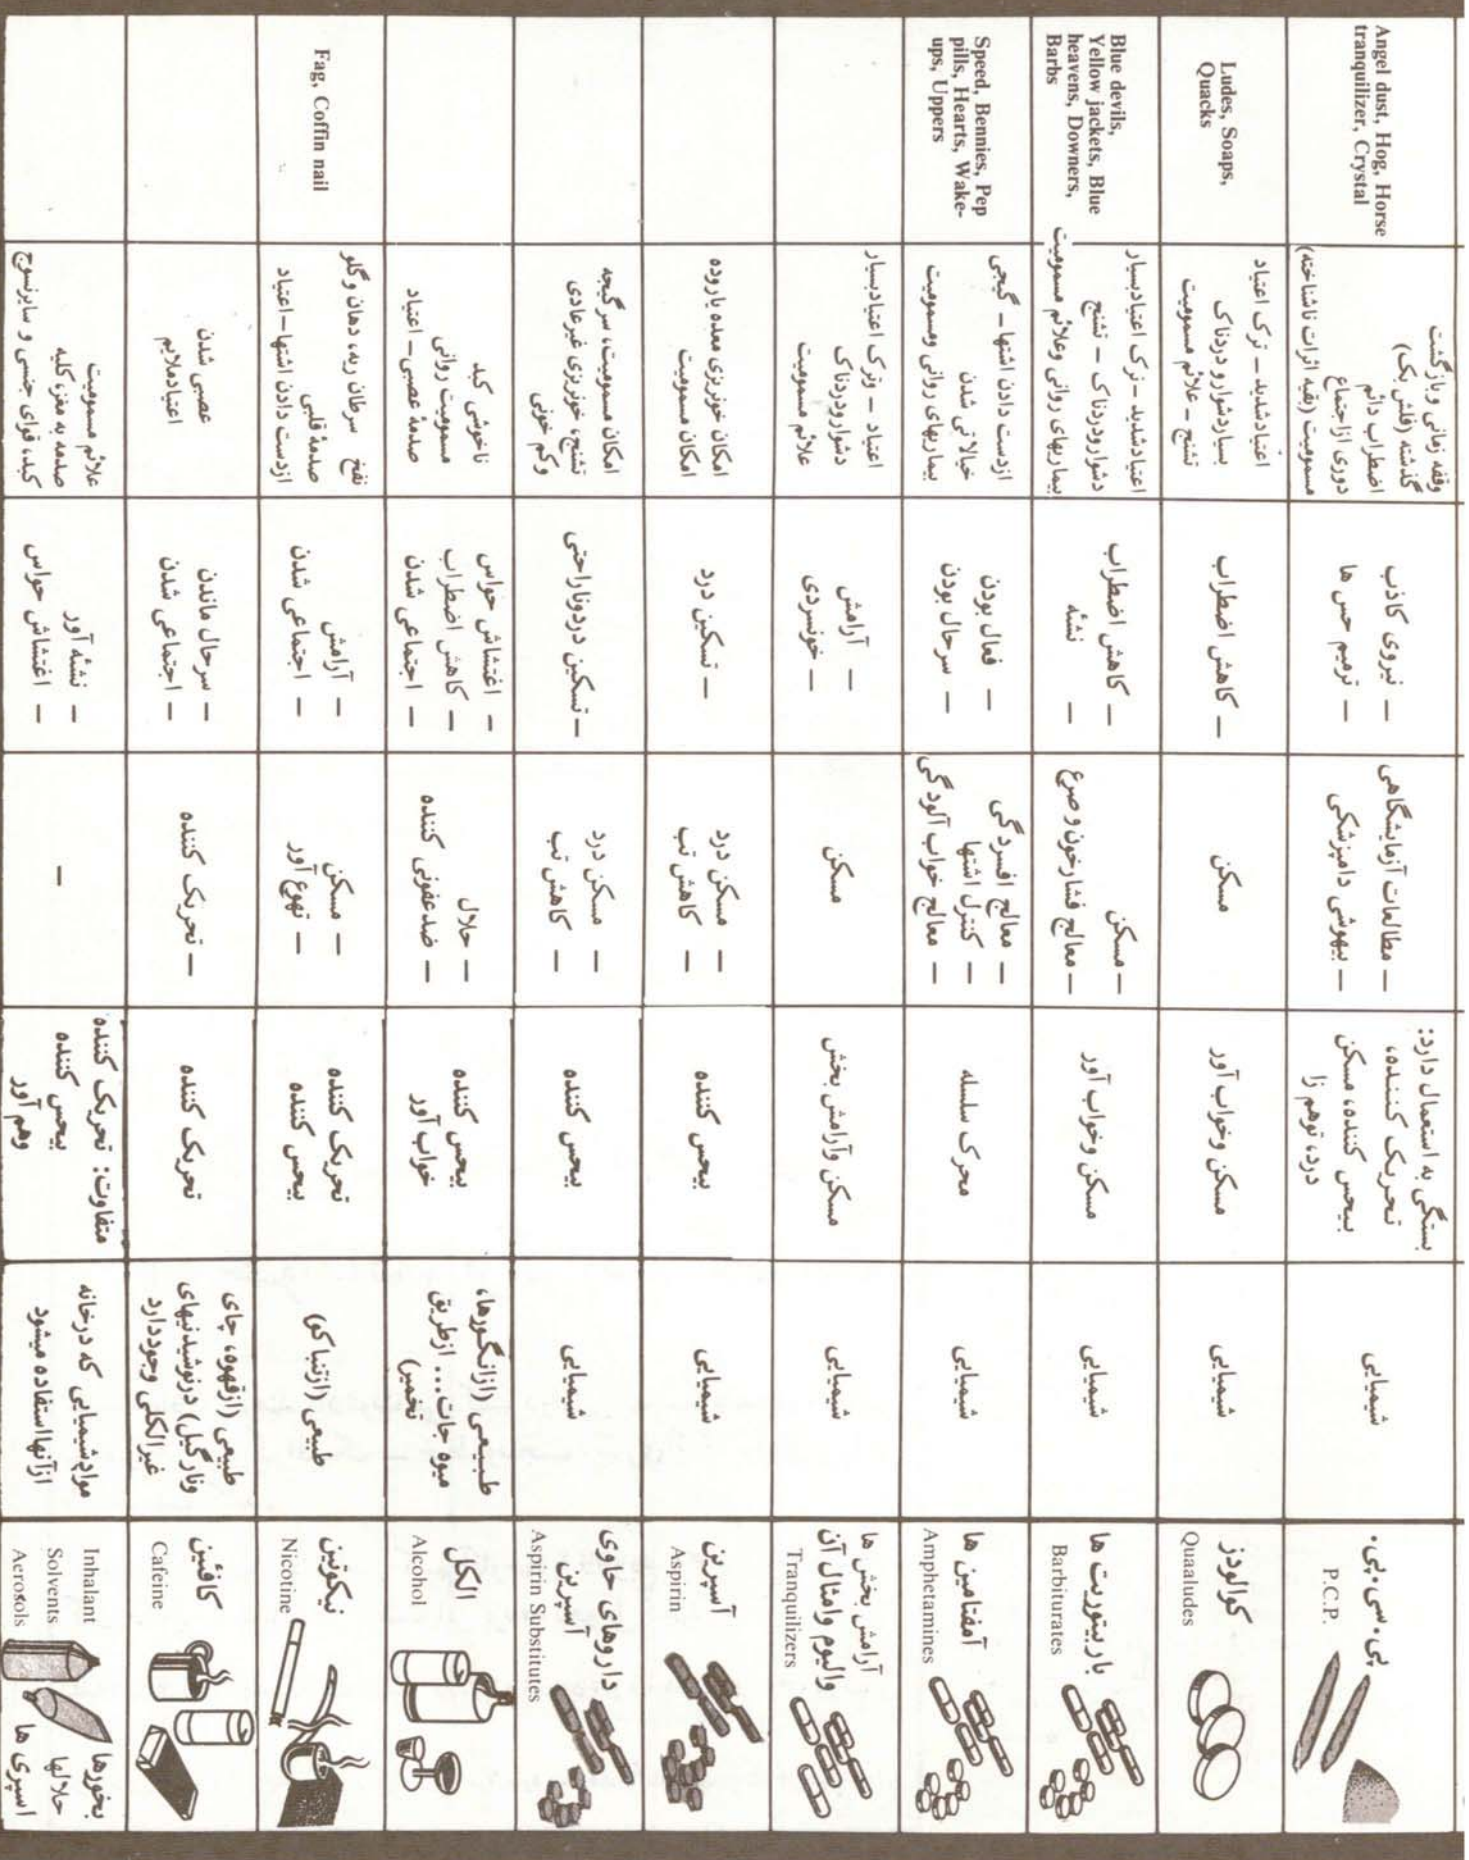 پی.سی.پی.
P.C.P.
شیمیایی
بستگی به استعمال دارد:
تحریک کننده،
بیحس کننده، مسکن
درد، توهم زا
— مطالعات آزمایشگاهی
— بیهوشی دامپزشکی
— نیروی کاذب
— ترمیم حس ها
وقفه زمانی وبازگشت
گذشته (فلش بک)
اضطراب دائم
دوری ازاجتماع
مسمومیت (بقیه اثرات ناشناخته)
Angel dust, Hog, Horse
tranquilizer, Crystal
کوالودز
Quaaludes
شیمیایی
مسکن وخواب آور
مسکن
— کاهش اضطراب
اعتیادشدید — ترک اعتیاد
بسیاردشوارو دردناک
تشنج – علائم مسمومیت
Ludes, Soaps,
Quacks
باربیتوریت ها
Barbiturates
شیمیایی
مسکن وخواب آور
— مسکن
— معالج فشارخون و صرع
— کاهش اضطراب
— نشئه
اعتیادشدید – ترک اعتیادبسیار
دشوارودردناک – تشنج
بیماریهای روانی وعلائم مسمومیت
Blue devils,
Yellow jackets, Blue
heavens, Downers,
Barbs
آمفتامین ها
Amphetamines
شیمیایی
محرک سلسله
— معالج افسردگی
— کنترل اشتها
— معالج خواب آلودگی
— فعال بودن
— سرحال بودن
ازدست دادن اشتها – گیجی
خیالاتی شدن
بیماریهای روانی ومسمومیت
Speed, Bennies, Pep
pills, Hearts, Wake-
ups, Uppers
آرامش بخش ها
والیوم وامثال آن
Tranquilizers
شیمیایی
مسکن وآرامش بخش
مسکن
— آرامش
— خونسردی
اعتیاد – وترک اعتیادبسیار
دشوارودردناک
علائم مسمومیت
آسپرین
Aspirin
شیمیایی
بیحس کننده
— مسکن درد
— کاهش تب
— تسکین درد
امکان خونریزی معده یاروده
امکان مسمومیت
داروهای حاوی
آسپرین
Aspirin Substitutes
شیمیایی
بیحس کننده
— مسکن درد
— کاهش تب
— تسکین دردوناراحتی
امکان مسمومیت، سرگیجه
تشنج، خونریزی غیرعادی
وکم خونی
الکل
Alcohol
طبیعی (ازانگورها،
میوه جات... ازطریق
تخمیر)
بیحس کننده
خواب آور
— حلال
— ضدعفونی کننده
— اغتشاش حواس
— کاهش اضطراب
— اجتماعی شدن
ناخوشی کبد
مسمومیت روانی
صدمهٔ عصبی – اعتیاد
نیکوتین
Nicotine
طبیعی (ازتنباکو)
تحریک کننده
بیحس کننده
— مسکن
— تهوع آور
— آرامش
— اجتماعی شدن
نفخ سرطان ریه، دهان وگلو
صدمهٔ قلبی
ازدست دادن اشتها – اعتیاد
Fag, Coffin nail
کافئین
Cafeine
طبیعی (ازقهوه، چای
ونارگیل) درنوشیدنیهای
غیرالکلی وجوددارد
تحریک کننده
— تحریک کننده
— سرحال ماندن
— اجتماعی شدن
عصبی شدن
اعتیادملایم
بخورها
Inhalant
حلالها
Solvents
اسپری ها
Aerosols
موادشیمیایی که درخانه
ازآنهااستفاده میشود
متفاوت: تحریک کننده
بیحس کننده
وهم آور
—
— نشئه آور
— اغتشاش حواس
علائم مسمومیت
صدمه به مغز، کلیه
کبد، قوای جنسی و سایرنسوج